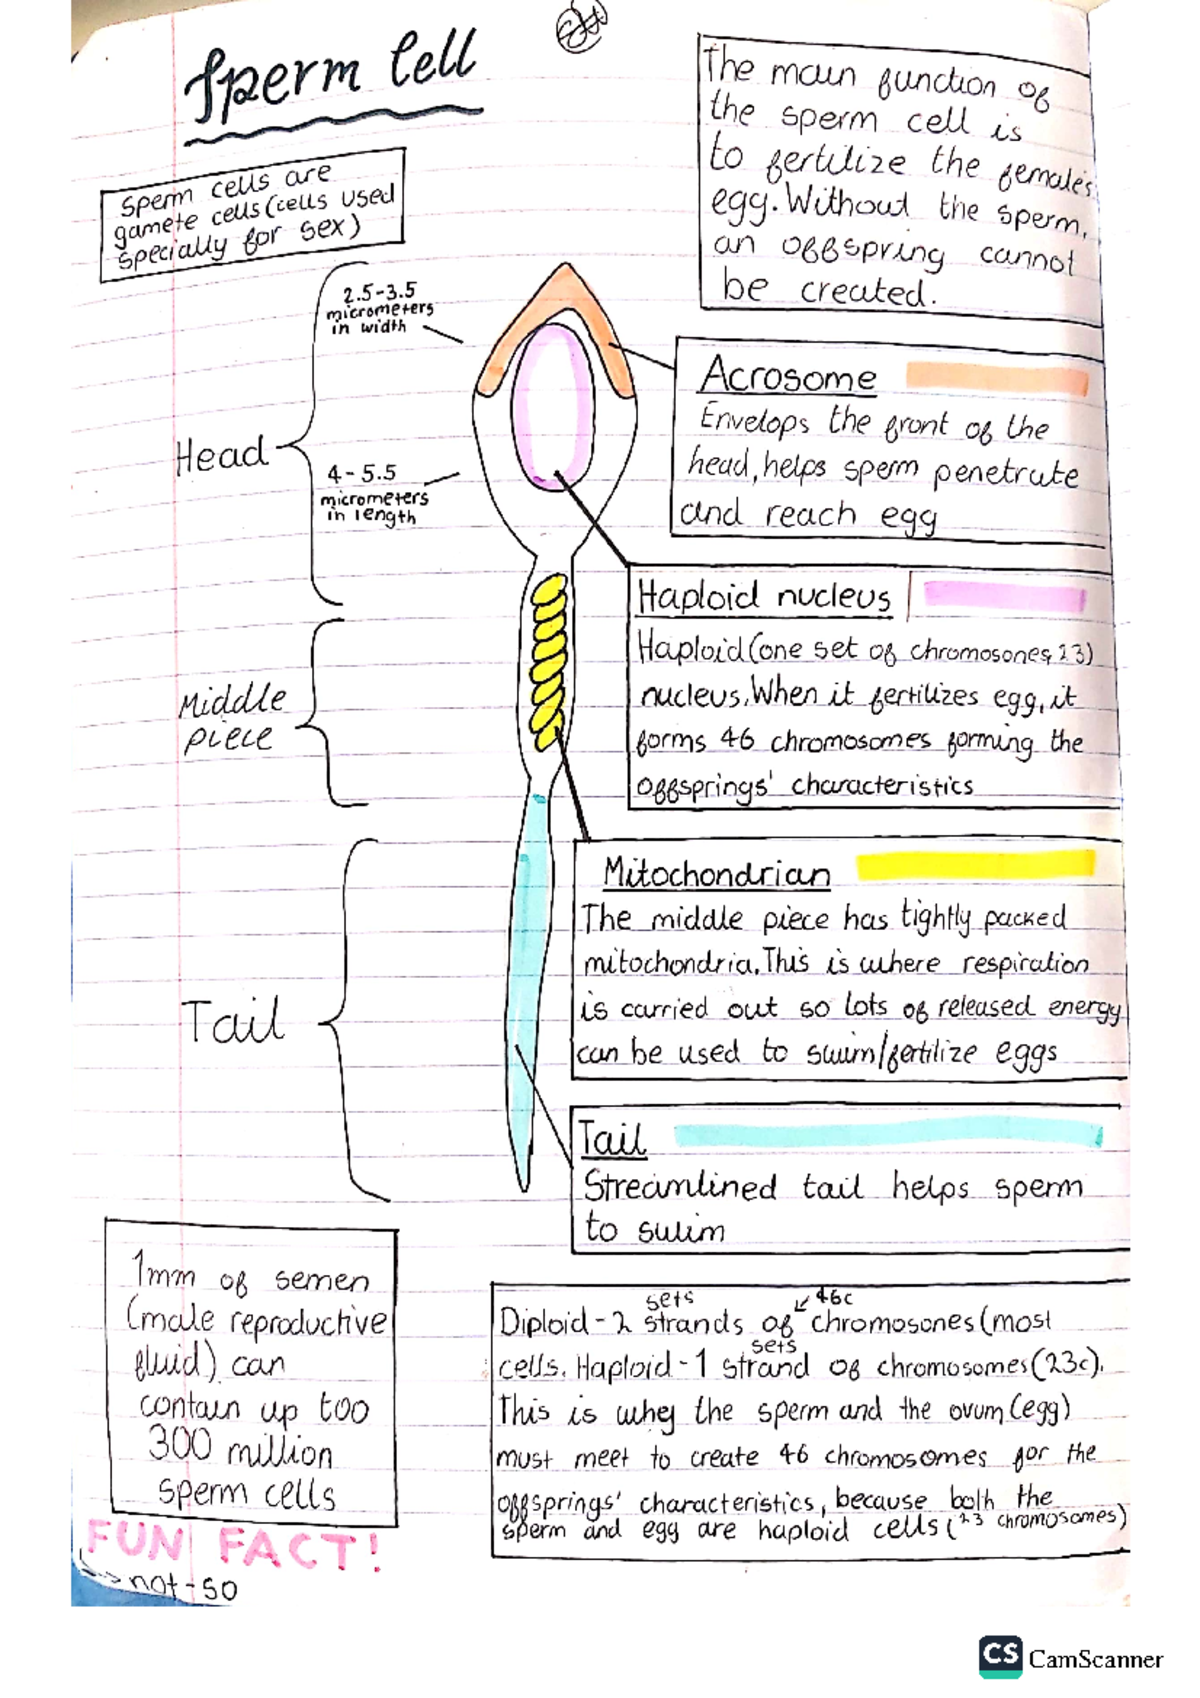 Sperm Cell
The main function of
the sperm cell is
to fertilize the females
egg. Without the sperm,
an offspring cannot
be created.
Sperm cells are
gamete cells (cells used
specially for sex)
2.5-3.5
micrometers
in width
Head
4-5.5
micrometers
in length
Acrosome
Envelops the front of the
head, helps sperm penetrate
and reach egg
Haploid nucleus
Haploid (one set of chromosones, 23)
nucleus. When it fertilizes egg, it
forms 46 chromosomes forming the
offsprings' characteristics
Middle
piece
Mitochondrian
The middle piece has tightly packed
mitochondria. This is where respiration
is carried out so lots of released energy
can be used to swim/fertilize eggs
Tail
Tail
Streamlined tail helps sperm
to swim
1mm of semen
(male reproductive
fluid) can
contain up too
300 million
sperm cells
FUN FACT!
not-so
sets 46c
Diploid - 2 strands of chromosones (most
sets
cells. Haploid - 1 strand of chromosomes (23c).
This is whey the sperm and the ovum (egg)
must meet to create 46 chromosomes for the
offsprings' characteristics, because both the
sperm and egg are haploid cells (23 chromosomes)
CS CamScanner